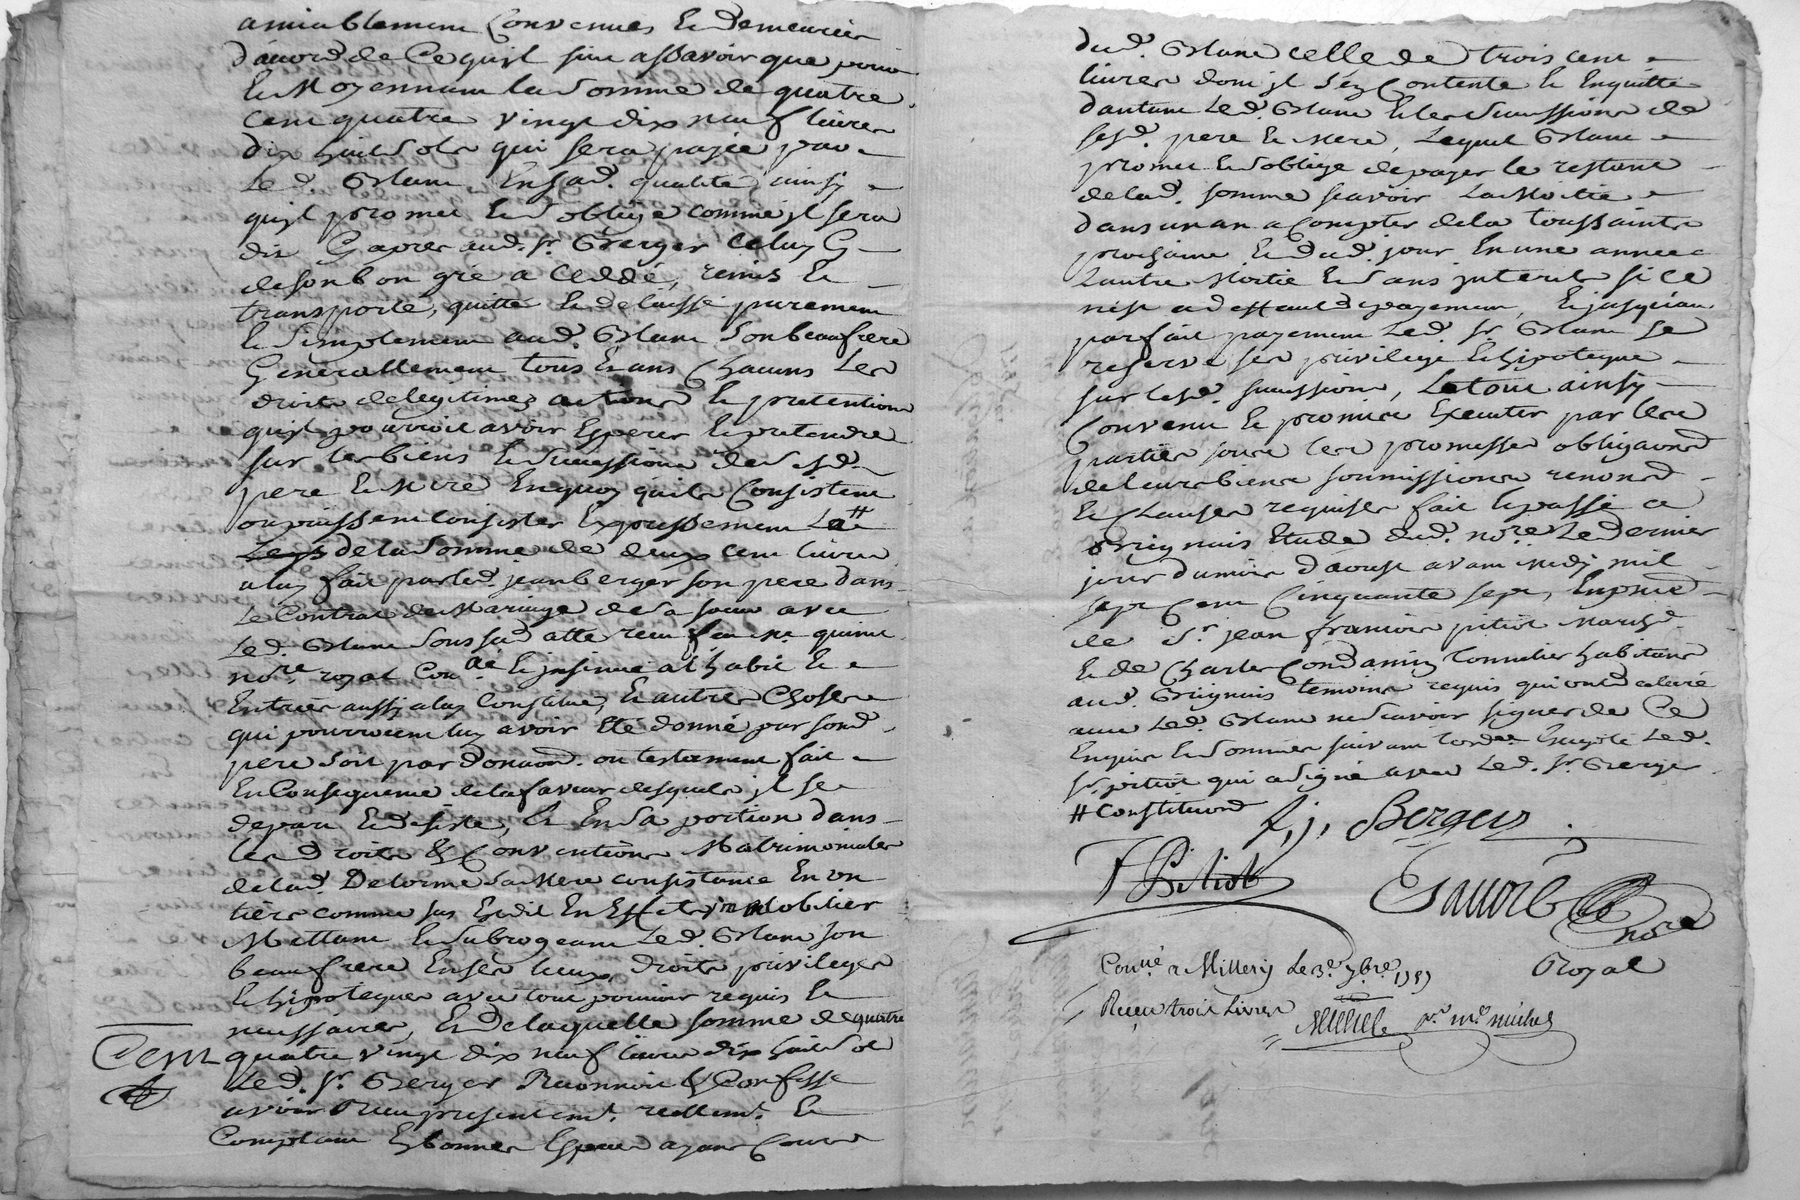 amiablement Convenues Et demeurées
d'acord de Ce quy suit assavoir que pour
Et Moyennant la somme de quatre
cent quatre vingt dix neuf livres
dix huit sols qui sera payée par
Led. En sad. qualité ainsy
quil promet Et s'oblige comme jl sera
dit Cy apres aud. Sr. Berger celuy Cy
de son bon gré a Ceddé, remis Et
transporté, quitté Et delaissé purement
Et simplement aud. son beaufrere
Generallement tous Et uns Chacuns Les
droits de legitime, actions Et pretentions
quil pourroit avoir Esperer Et pretendre
sur les biens Et successions de sesd.
pere Et Mere En quoy quils Consistent
ou puissent consister Expressement La #
Legs de la somme de deux cent livres
a luy fait par led. jean berger son pere dans
Le Contrat de Mariage de sa soeur avec
Led. sous sa datte receu feu Me.
nore. royal Conlé. Et jnsinué a Et
Entrées aussy a luy Et autres Choses
qui pourroient luy avoir Eté donné par sond.
pere soit par donaon. ou testament fait
En Consequence de la faveur desquels jl se
depart Et desiste, Et En sa portion dans
les droits & Conventions Matrimoniales
de lad. Delorme sa Mere consistante En
comme sus Est dit En Effets jmmobilier
Mettant Et subrogeant Led. son
beaufrere En ses lieux, droits privileges
Et hipoteques avec tout pouvoir requis Et
necessaires, Et de laquelle somme de quatre
Cent quatre vingt dix neuf livres dix huit sols
Led. Sr. Berger Reconnoit & Confesse
avoir Receu presentemt. reellemt. Et
Comptant En bonnes Especes ayant Cours
dud. celle de trois cent
livres dont jl s'en Contente Et En quitte
d'autant Led. Et les successions de
sesd. pere Et Mere, Lequel
promet Et s'oblige de payer le restant
de lad. somme scavoir La Moitié
dans un an a Compter de la toussaints
prochaine Et dud. jour En une année
L'autre Moitié Et sans jnterets si ce
n'est a deffault de payement, Et jusqu'au
parfait payement Led. Sr. se
reserve ses privilege Et hipoteque
sur lesd. successions, Le tout ainsy
Convenu Et promis Executer par les
parties sous les promesses obligaons
de leurs biens soumissions renonds.
Et Clauses requises fait Et passé a
Grignis Etude dud. nore. Le dernier
jour du mois d'aoust avant midy mil
sept Cent Cinquante sept, En prnce.
de Sr. jean francois pitiot
Et de Charles Condamin tonnelier habitans
aud. Grignis temoins requis qui ont declaré
avec Led. ne scavoir signer de Ce
Enquis Et sommés suivant l'ordce. Excepté Led.
Sr. pitiot qui a signé avec Led. Sr. Berger
# constitution
J, j, Berger
F Pitiot
nore
Royal
Conlé a Millery Le 3e. 7bre. 1757
Receu trois Livres